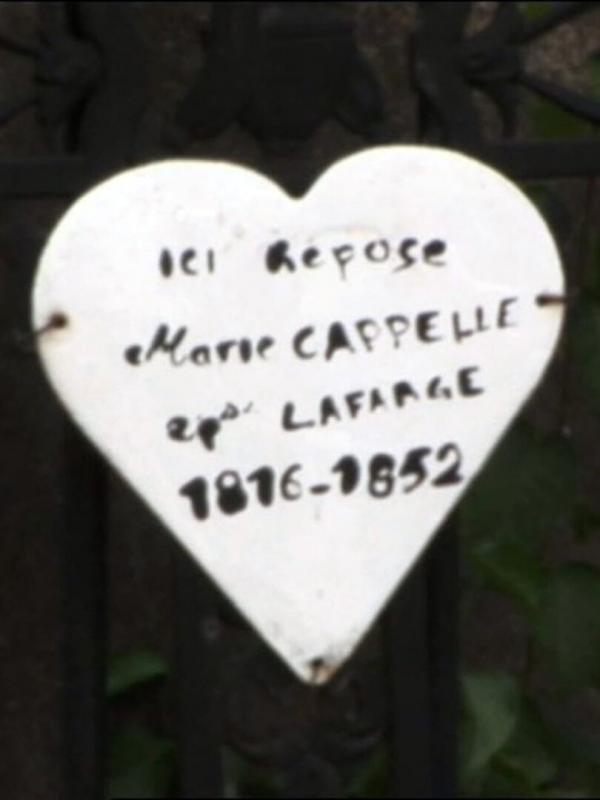 ici Repose
Marie CAPPELLE
epse LAFARGE
1816-1852